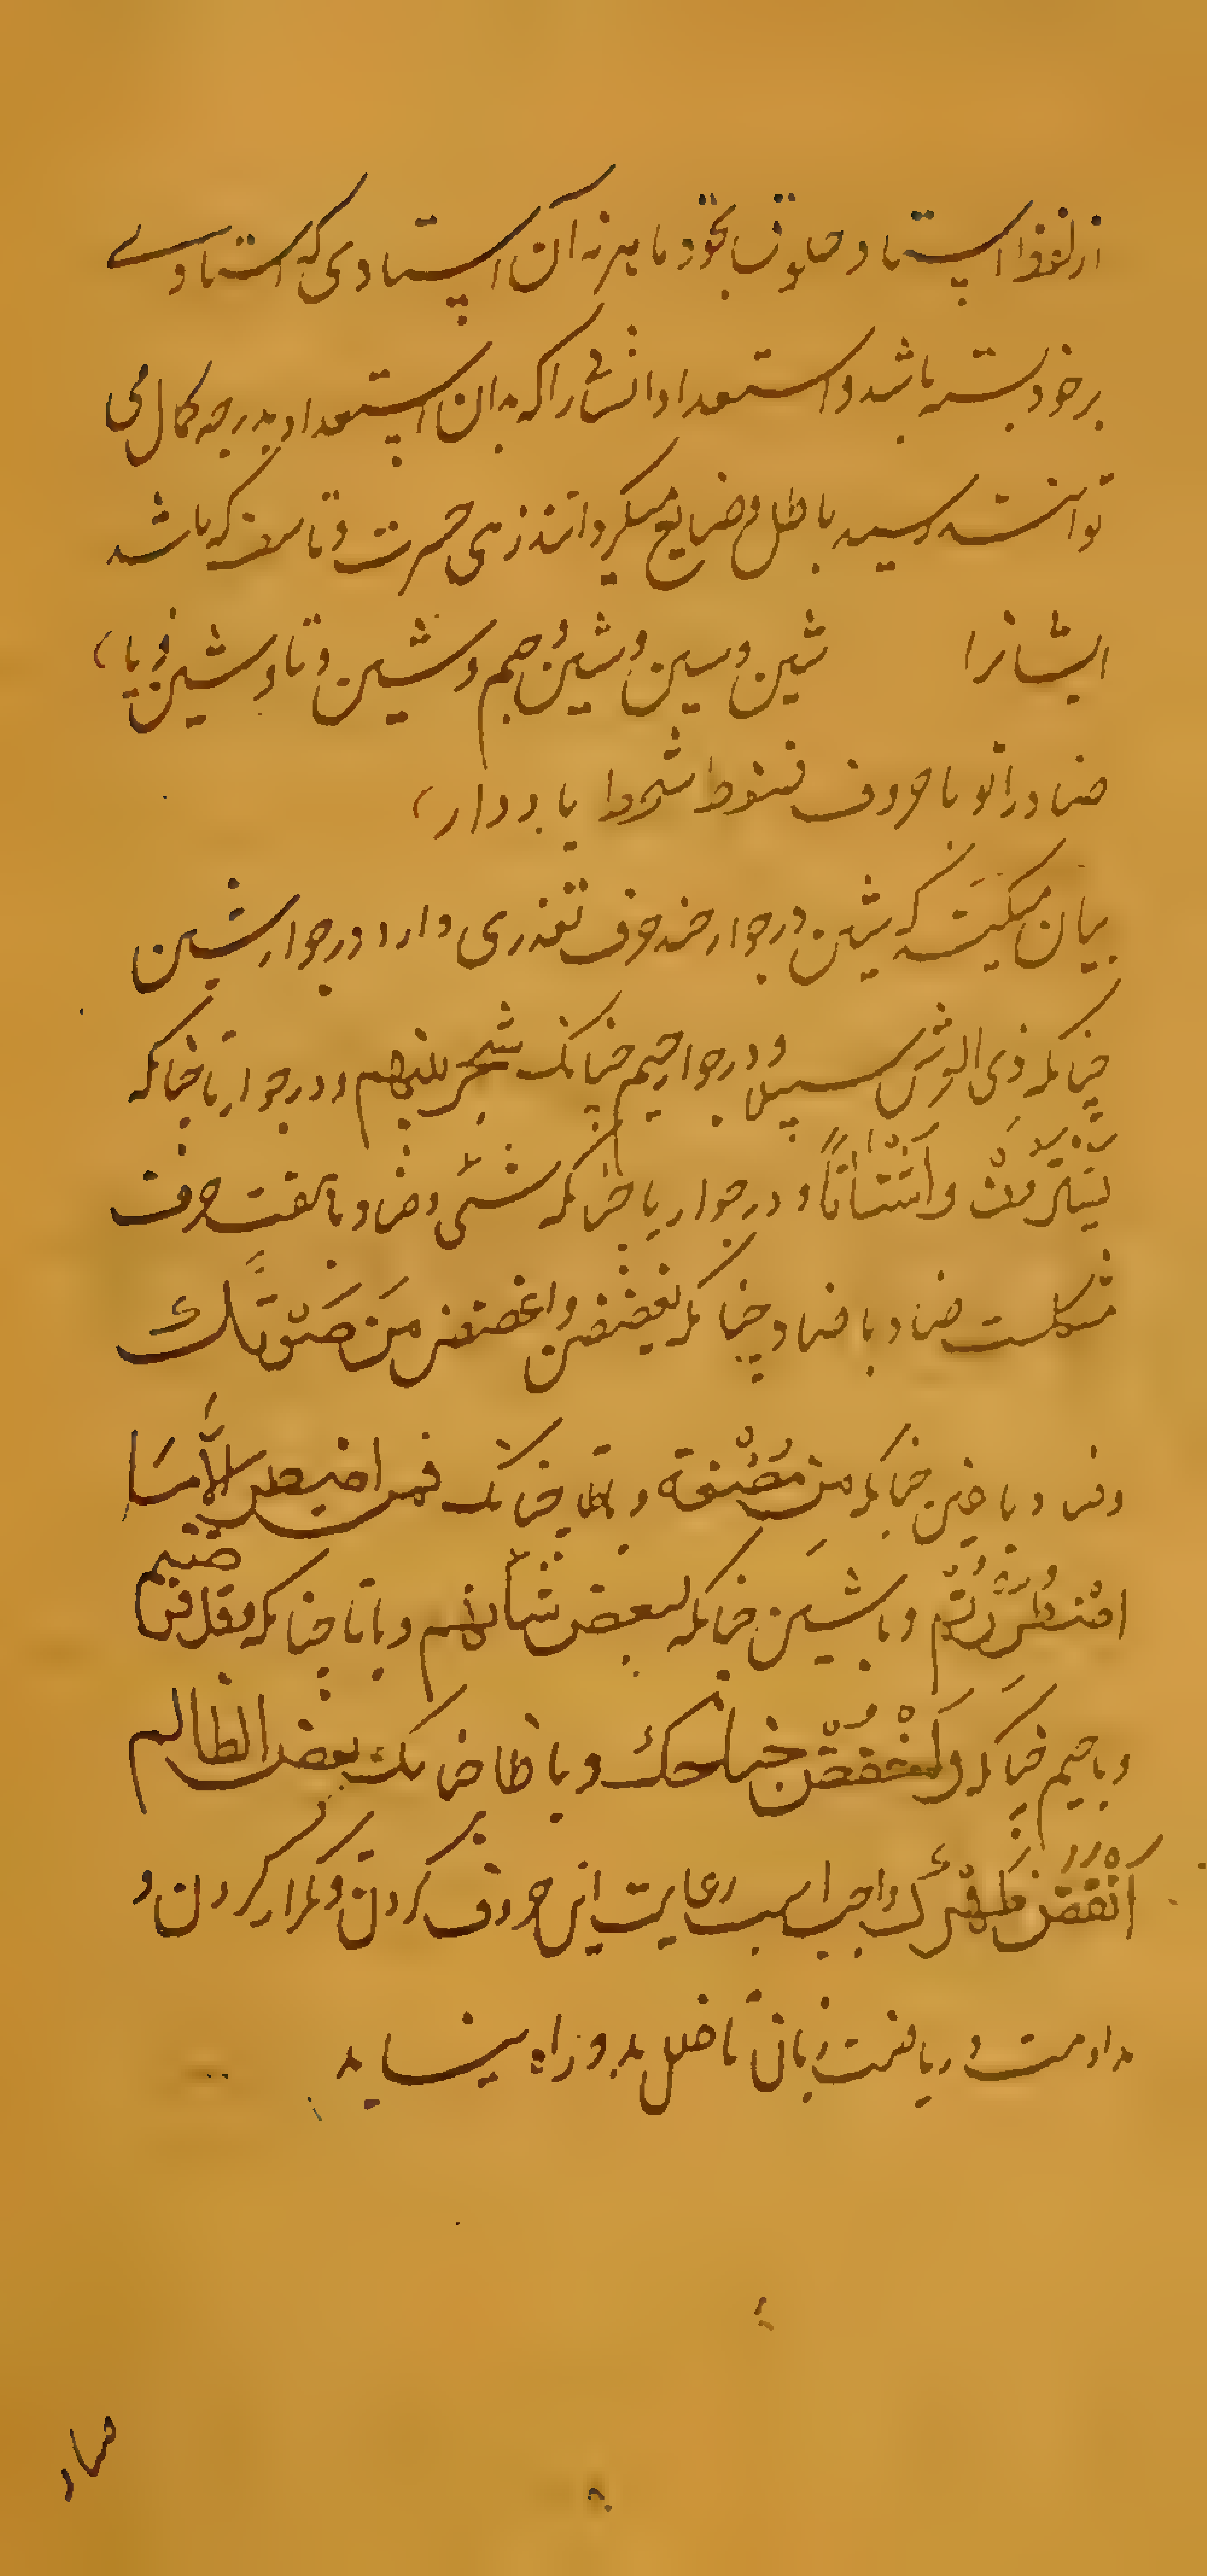 از لفظ استاد حاذق بخود ماهر نه آن استادی که استادے
برخود بسته باشد و استعداد انش را که بدان استعداد بدرجه کمال می
توانست رسید باطل و ضایع میگرداند زهی حسرت و تاسف که باشد
ایشانرا شین و سین و شین و جیم و شین و تا و شین و یا
ضاد را تو با حروف شرط یاد دار
بیان میکند که شین در جوار چند حرف تعذری دارد در جوار شین
چنانکه ذی العرش سبیلا و در جوار جیم چنانکه شجر بینهم و در جوار تا چنانکه
و اشتاتا و در جوار یا چنانکه شئی و ضاد با هفت حرف
مشکلست ضاد با ضاد چنانکه یغضضن و اغضض من صوتك
و ضاد با غین چنانکه من مضغة و با طا چنانکه فمن اضطر الا ما
اضطررتم و با شین چنانکه لبعض شأنهم و با تا چنانکه فقد فرضتم
و با جیم چنانکه واخفض جناحك و با ظا چنانکه بعض الظالم
انقض ظهرك واجب است رعایت این حروف کردن و تکرار کردن و
مداومت و ریاضت زبان تا خلل بدو راه نیابد